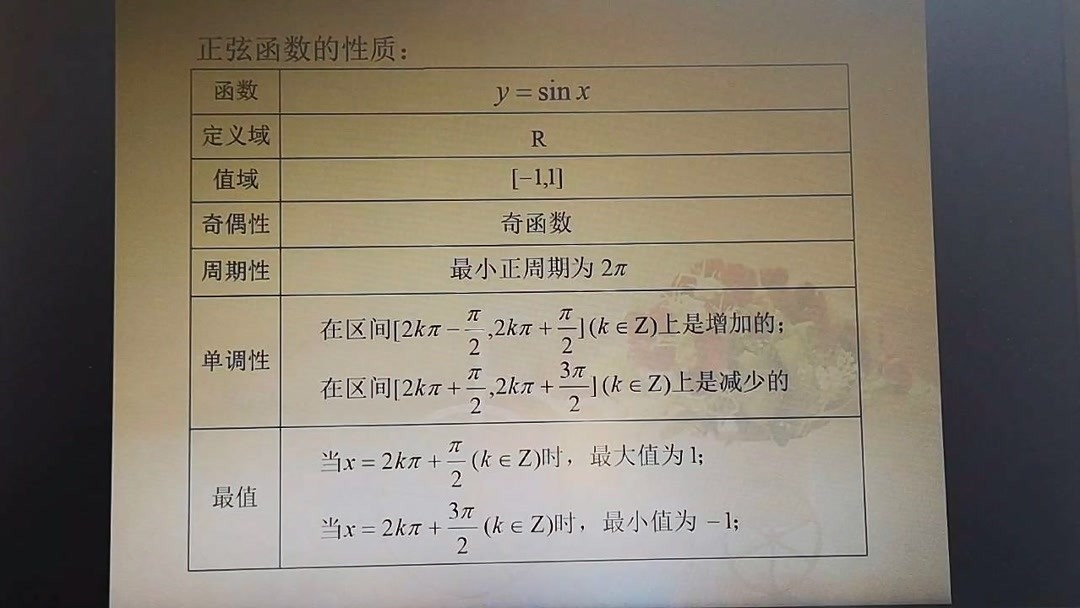 正弦函数的性质：
函数 y = sin x
定义域 R
值域 [−1,1]
奇偶性 奇函数
周期性 最小正周期为 2π
单调性 在区间[2kπ − π/2, 2kπ + π/2](k ∈ Z)上是增加的；
在区间[2kπ + π/2, 2kπ + 3π/2](k ∈ Z)上是减少的
最值 当x = 2kπ + π/2 (k ∈ Z)时，最大值为1；
当x = 2kπ + 3π/2 (k ∈ Z)时，最小值为 −1；